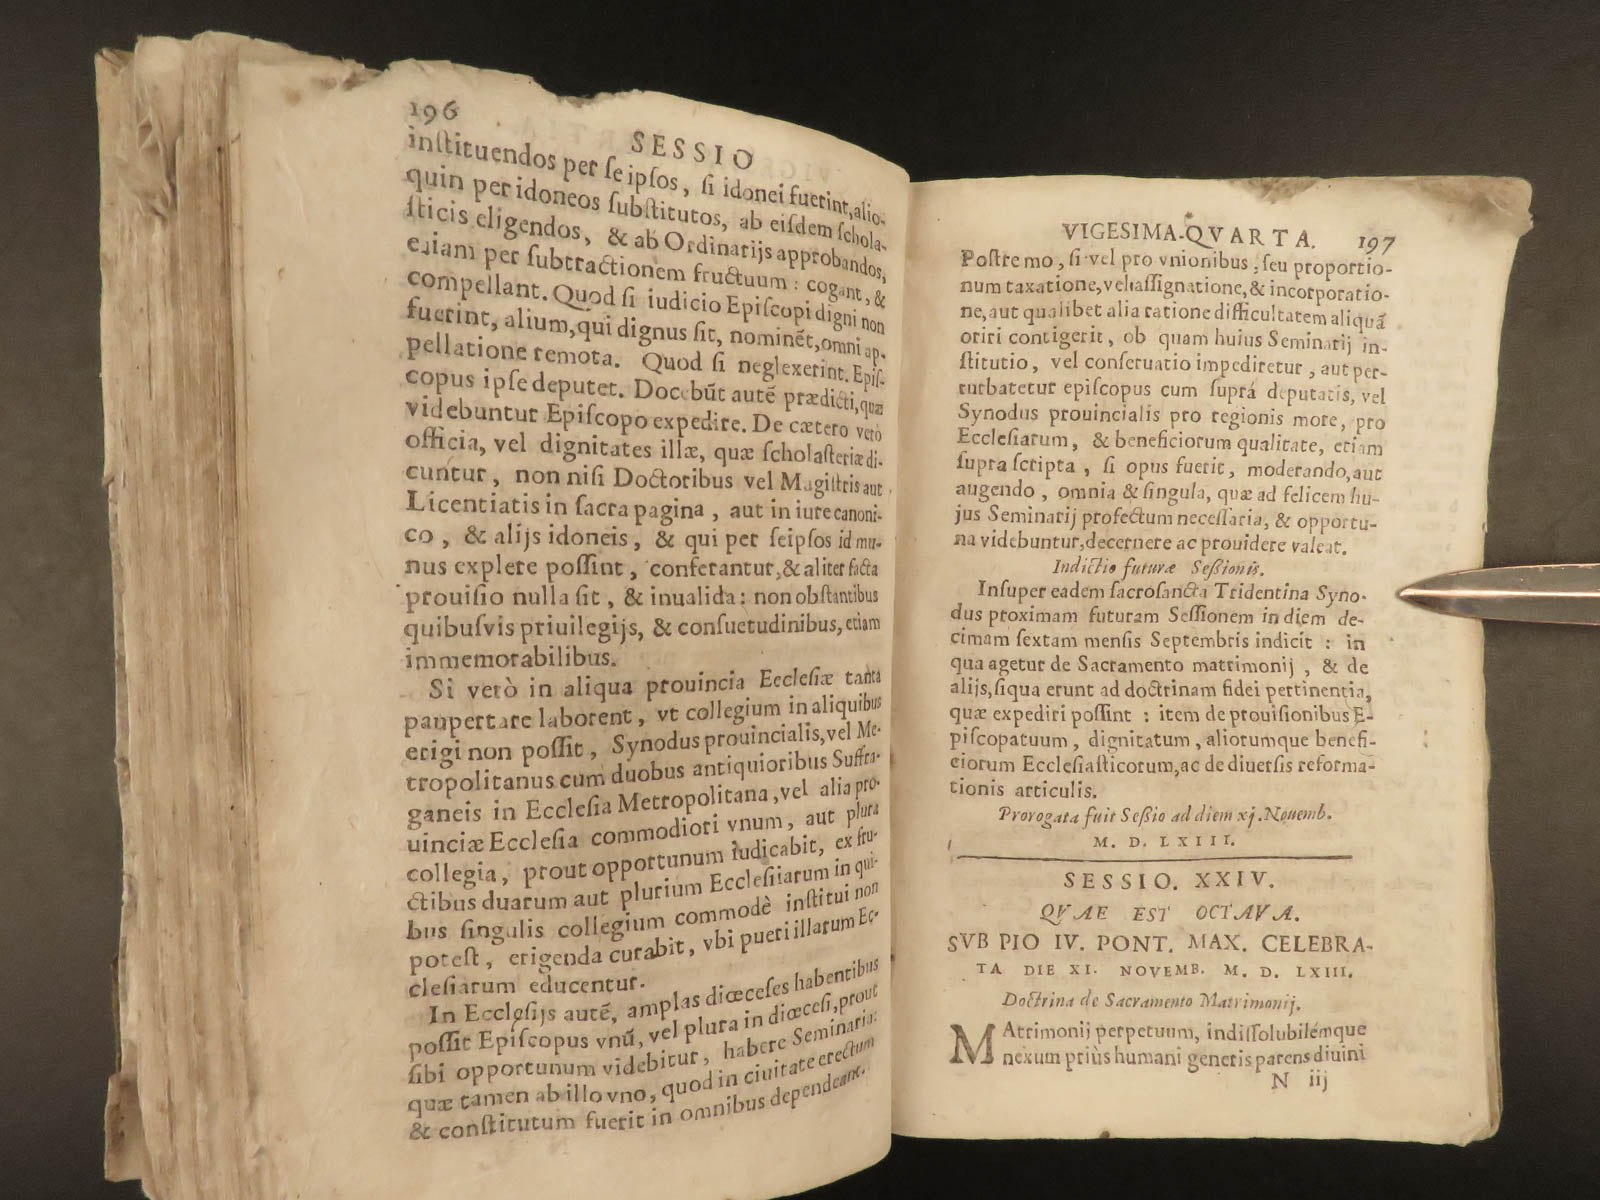 196
SESSIO
instituendos per seipsos, si idonei fuerint, alio-
quin per idoneos substitutos, ab eisdem schola-
sticis eligendos, & ab Ordinarijs approbandos,
etiam per subtractionem fructuum : cogant, &
compellant. Quod si iudicio Episcopi digni non
fuerint, alium, qui dignus sit, nominẽt, omni ap-
pellatione remota. Quod si neglexerint. Epis-
copus ipse deputet. Docebũt autẽ prædicti, quæ
videbuntur Episcopo expedire. De cætero verò
officia, vel dignitates illæ, quæ scholasteriæ di-
cuntur, non nisi Doctoribus vel Magistris aut
Licentiatis in sacra pagina, aut in iure canoni-
co, & alijs idoneis, & qui per seipsos id mu-
nus explere possint, conferantur, & aliter facta
prouisio nulla sit, & inualida: non obstantibus
quibusvis priuilegijs, & consuetudinibus, etiam
immemorabilibus.
Si verò in aliqua prouincia Ecclesiæ tanta
paupertate laborent, vt collegium in aliquibus
erigi non possit, Synodus prouincialis, vel Me-
tropolitanus cum duobus antiquioribus Suffra-
ganeis in Ecclesia Metropolitana, vel alia pro-
uinciæ Ecclesia commodiori vnum, aut plura
collegia, prout opportunum iudicabit, ex fru-
ctibus duarum aut plurium Ecclesiiarum in qui-
bus singulis collegium commodè institui non
potest, erigenda curabit, vbi pueri illarum Ec-
clesiarum educentur.
In Ecclesijs autẽ, amplas diœceses habentibus
possit Episcopus vnũ, vel plura in diœcesi, prout
sibi opportunum videbitur, habere Seminaria:
quæ tamen ab illo vno, quod in ciuitate erectum
& constitutum fuerit in omnibus dependeant.
VIGESIMA-QVARTA. 197
Postremo, si vel pro vnionibus, seu proportio-
num taxatione, vel assignatione, & incorporatio-
ne, aut qualibet alia ratione difficultatem aliquã
oriri contigerit, ob quam huius Seminarij in-
stitutio, vel conseruatio impediretur, aut per-
turbaretur episcopus cum suprá deputatis, vel
Synodus prouincialis pro regionis more, pro
Ecclesiarum, & beneficiorum qualitate, etiam
supra scripta, si opus fuerit, moderando, aut
augendo, omnia & singula, quæ ad felicem hu-
jus Seminarij profectum necessaria, & opportu-
na videbuntur, decernere ac prouidere valeat.
Indictio futuræ Sessionis.
Insuper eadem sacrosancta Tridentina Syno-
dus proximam futuram Sessionem in diem de-
cimam sextam mensis Septembris indicit : in
qua agetur de Sacramento matrimonij, & de
alijs, siqua erunt ad doctrinam fidei pertinentia,
quæ expediri possint : item de prouisionibus E-
piscopatuum, dignitatum, aliorumque benefi-
ciorum Ecclesiasticorum, ac de diuersis reforma-
tionis articulis.
Prorogata fuit Sessio ad diem xj. Nouemb.
M. D. LXIII.
SESSIO. XXIV.
QVAE EST OCTAVA.
SVB PIO IV. PONT. MAX. CELEBRA-
TA DIE XI. NOVEMB. M. D. LXIII.
Doctrina de Sacramento Matrimonij.
MAtrimonij perpetuum, indissolubilémque
nexum priùs humani generis parens diuini
N iij